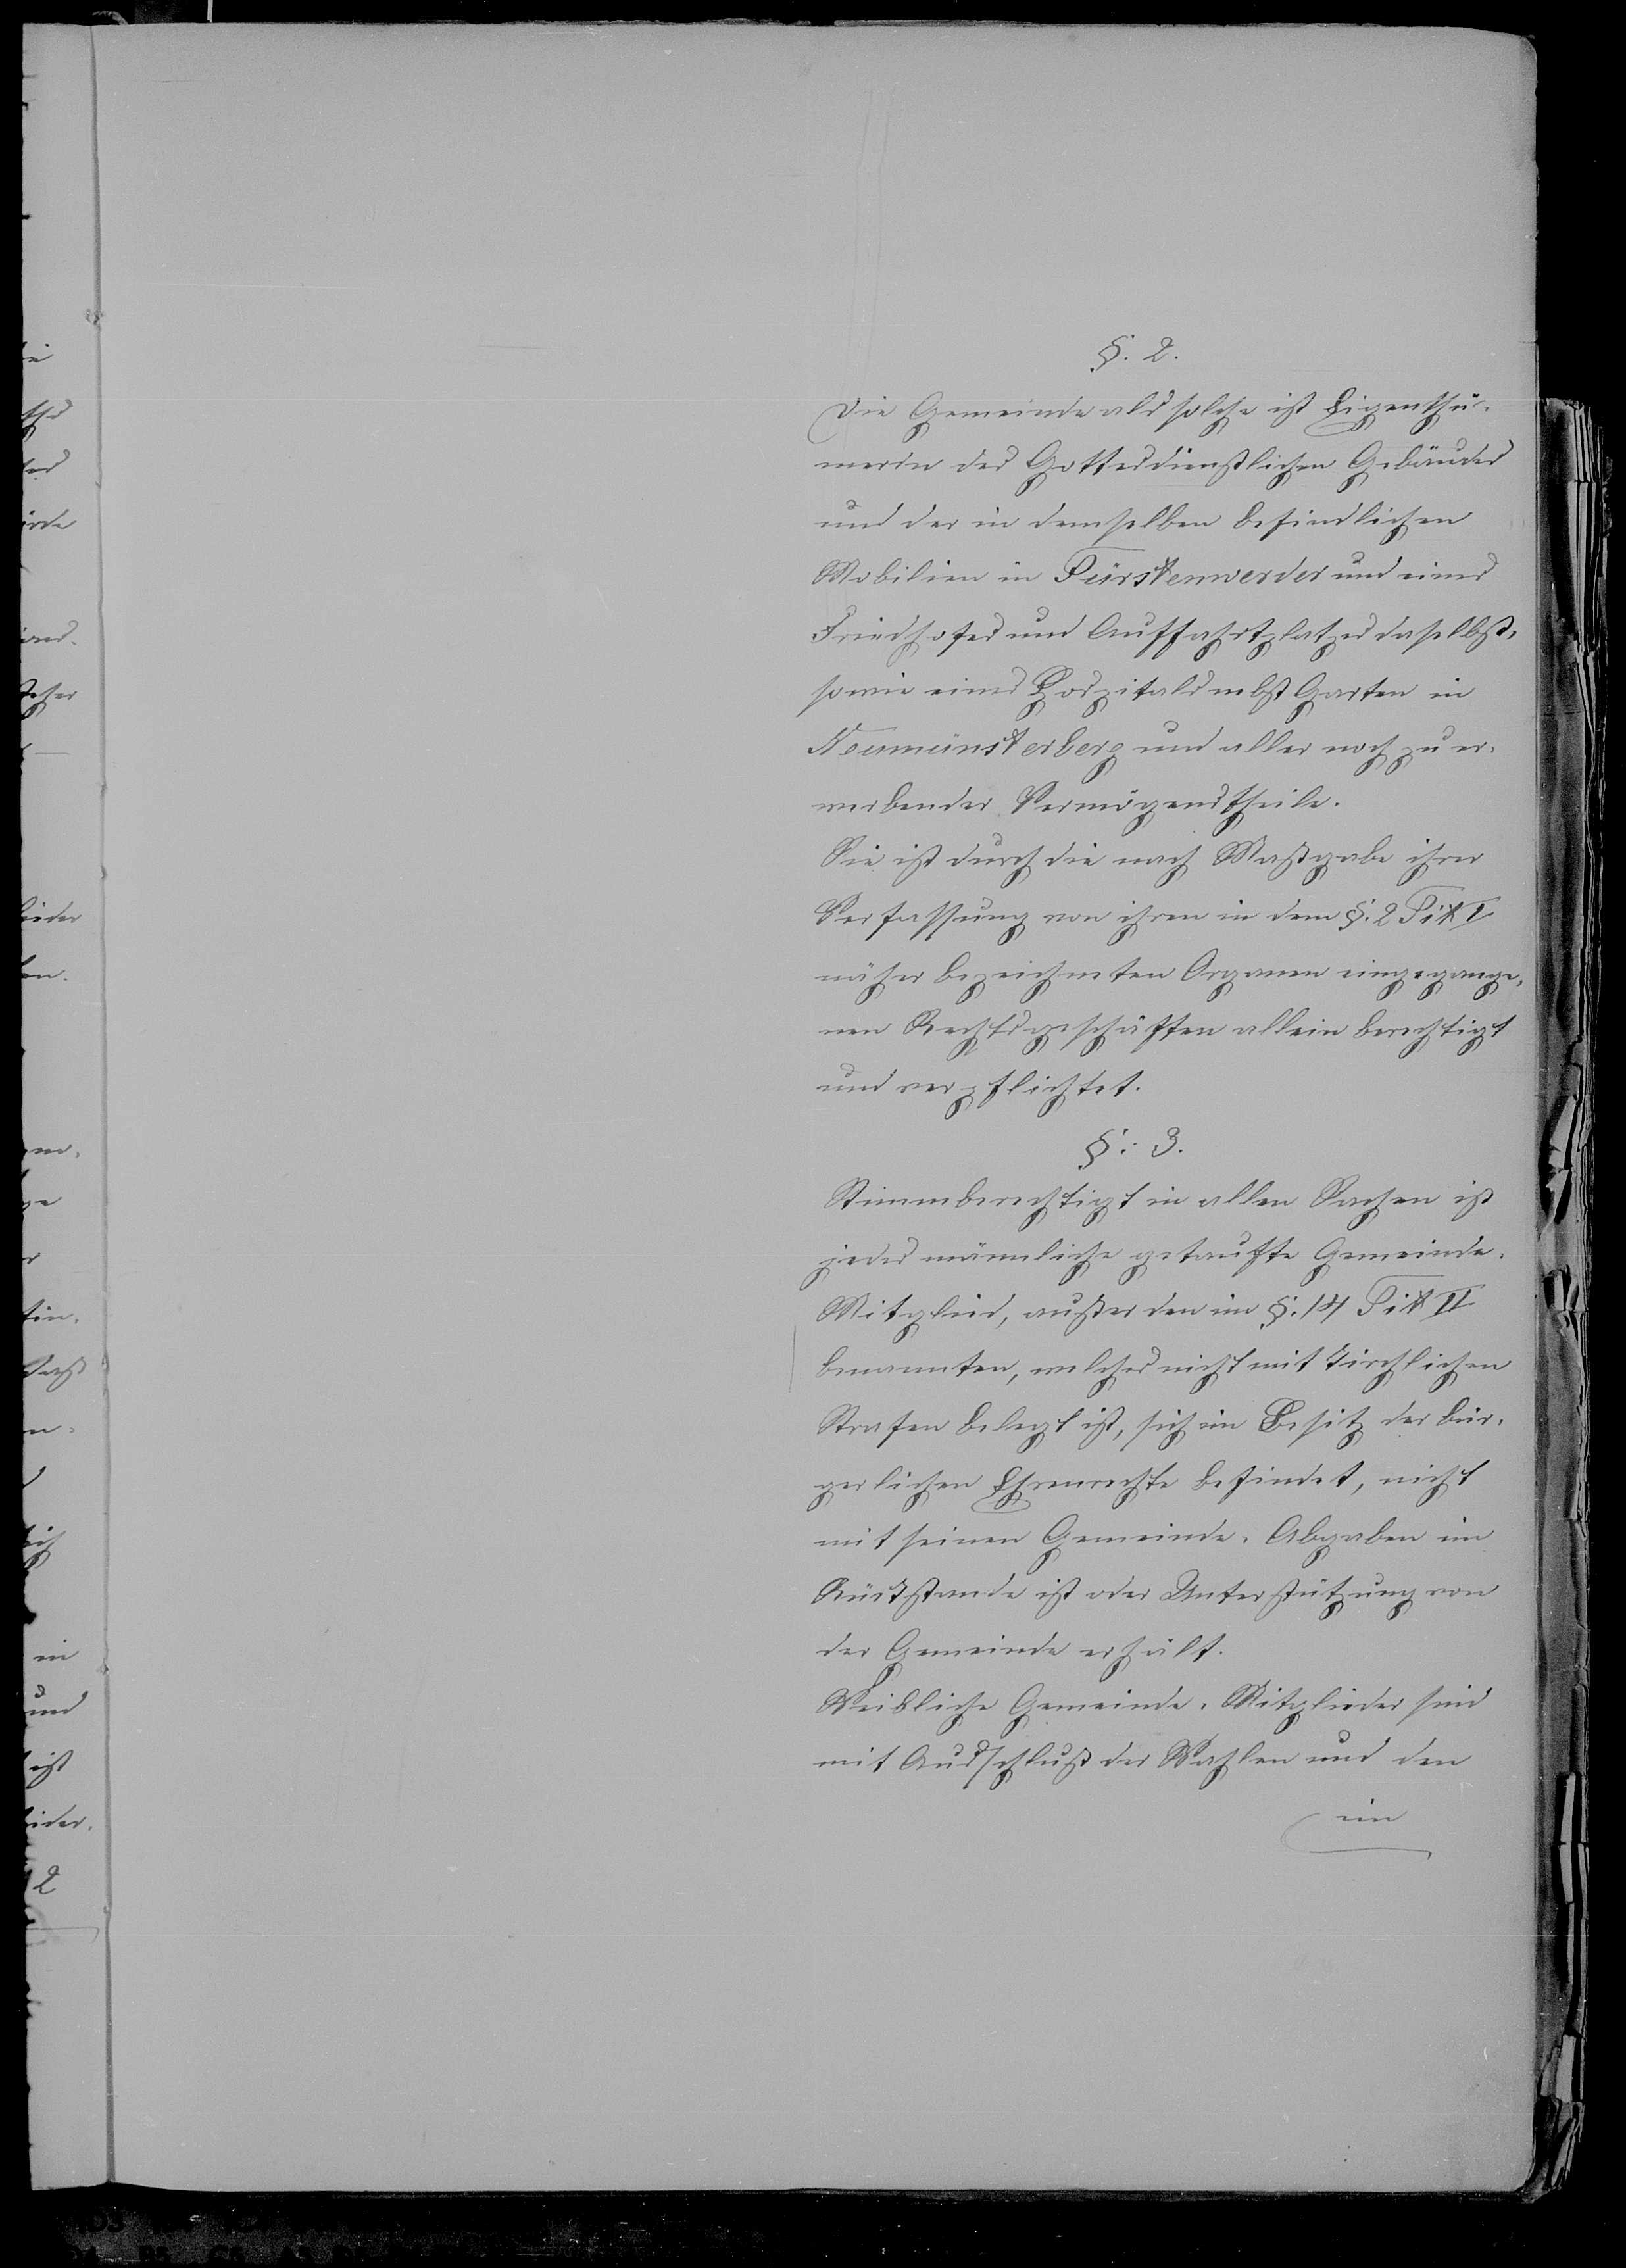 §. 2.
Die Gemeinde als solche ist Eigenthü-
merin des Gottesdienstlichen Gebäudes
und der in demselben befindlichen
Mobilien in Fürstenwerder und eines
Friedhofes und Auffahrtplatzes daselbst,
sowie eines Hospitals nebst Garten in
Neumünsterberg und aller noch zu er-
werbender Vermögenstheile.
Sie ist durch die nach Maßgabe ihrer
Verfassung von ihren in dem §. 2 Tit I
näher bezeichneten Organen eingegange-
nen Rechtsgeschäften allein berechtigt
und verpflichtet.
§. 3.
Stimmberechtigt in allen Sachen ist
jedes männliche getaufte Gemeinde-
Mitglied, außer den im §. 14 Tit II
benannten, welches nicht mit kirchlichen
Strafen belegt ist, sich im Besitz der bür-
gerlichen Ehrenrechte befindet, nicht
mit seinen Gemeinde-Abgaben im
Rückstande ist oder Unterstützung von
der Gemeinde erhält.
Weibliche Gemeinde-Mitglieder sind
mit Ausschluß der Wahlen und den
im